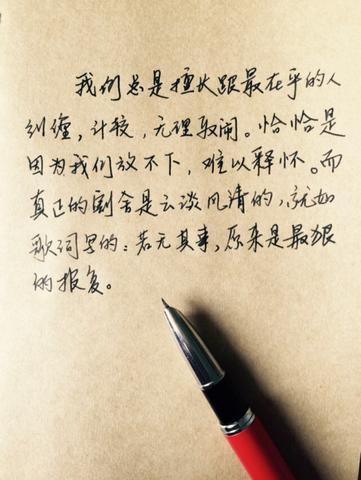 我们总是擅长跟最在乎的人
纠缠，计较，无理取闹。恰恰是
因为我们放不下，难以释怀。而
真正的割舍是云谈风清的，就如
歌词写的：若无其事，原来是最狠
的报复。